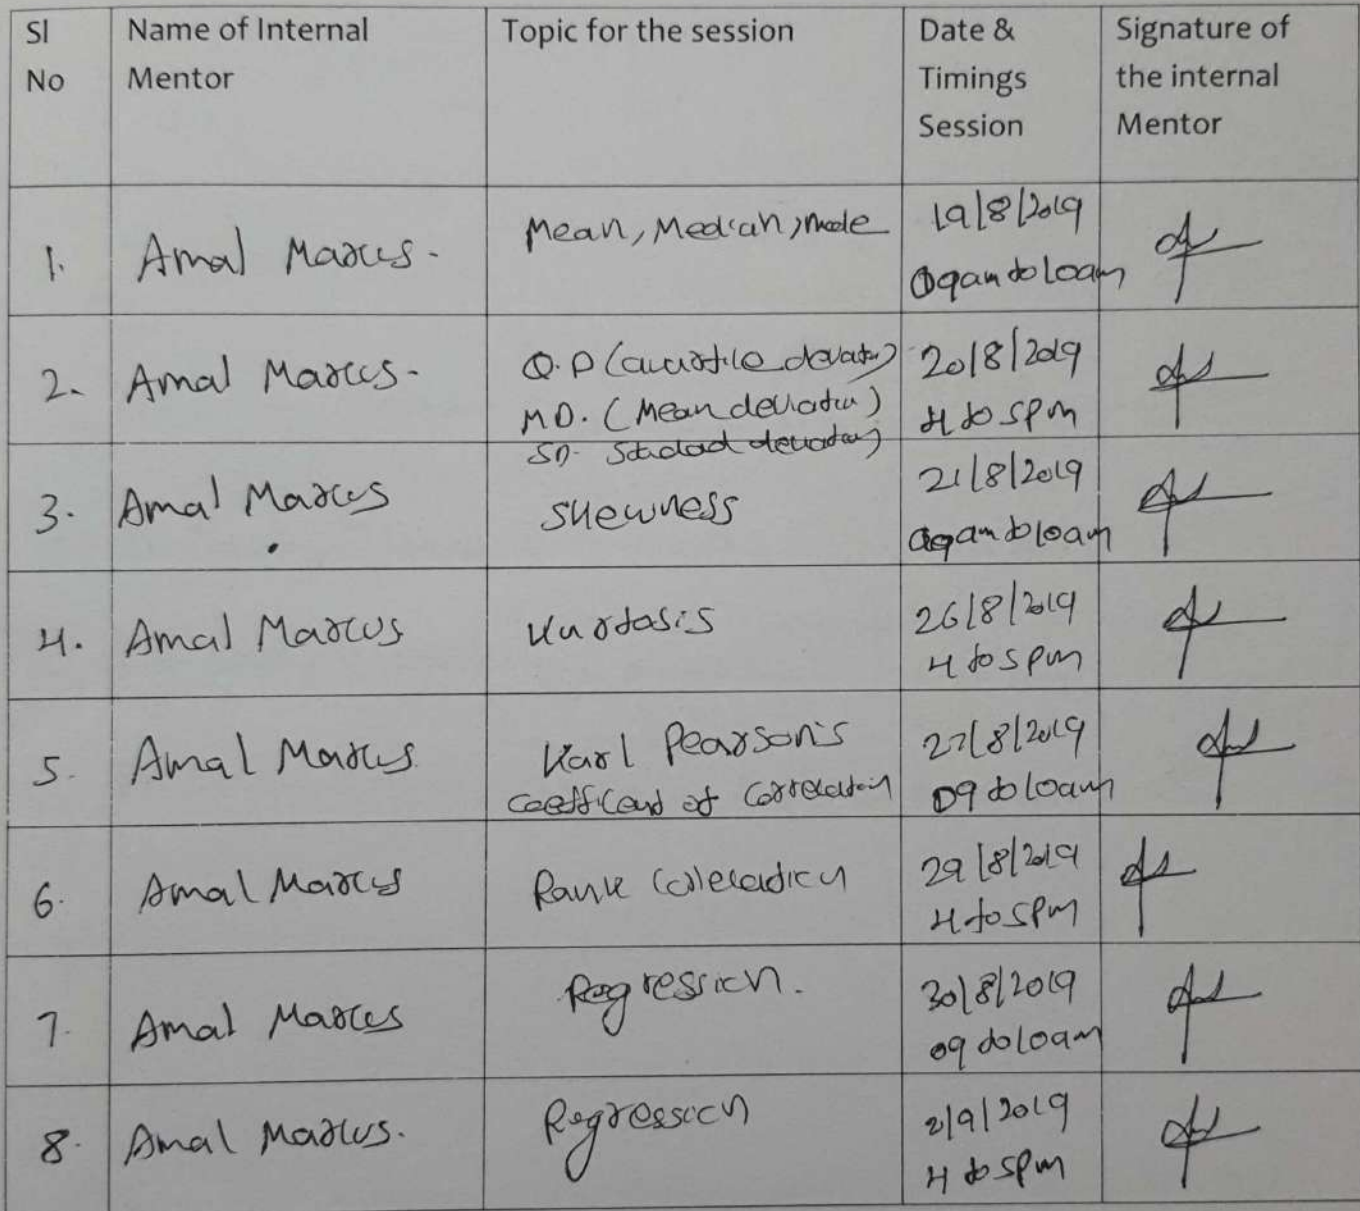 Sl No
Name of Internal Mentor
Topic for the session
Date & Timings Session
Signature of the internal Mentor
1. Amal Marcus. Mean, Median, mode 19/8/2019
09am to 10am
2. Amal Marcus. Q.D (quartile deviation) 20/8/2019
M.D. (Mean deviation) 4 to 5pm
SD. Standard deviation)
3. Amal Marcus Skewness 21/8/2019
09am to 10am
4. Amal Marcus Kurtosis 26/8/2019
4 to 5pm
5. Amal Marcus Karl Pearson's 27/8/2019
Coefficient of Correlation 09 to 10am
6. Amal Marcus Rank Correlation 29/8/2019
4 to 5pm
7. Amal Marcus Regression. 30/8/2019
09 to 10am
8. Amal Marcus. Regression 2/9/2019
4 to 5pm